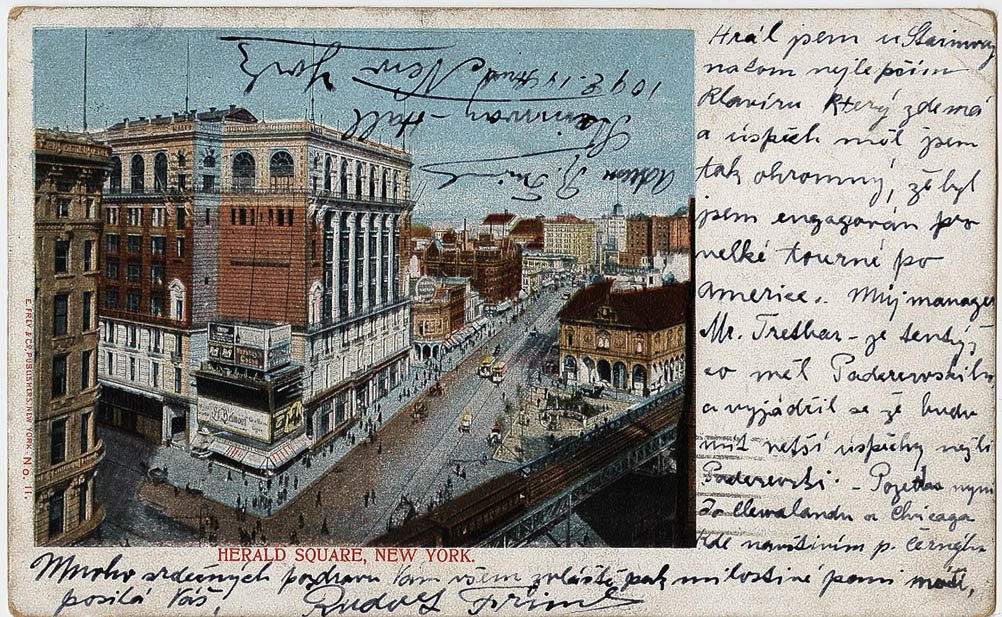 Hrál jem u Stainway
na tom nejlepším
Klavíru který zde má
a úspěch měl jsem
tak ohromný, že byl
jsem engagován pro
velké tourné po
Americe. Můj manager
Mr. Tretbar - je tentýž
co měl Paderewského
a vyjádřil se že budu
mít větší úspěchy nežli
Paderewski. - Pojedu nyní
do Clewelandu a Chicaga
kde navštívím p. Černýho
Mnoho srdečných pozdravů Vám všem zvláště pak milostivé paní
posílá Váš,
Rudolf Friml
Adress R. Friml
Stainway-Hall
109 E. 14 New York
HERALD SQUARE, NEW YORK.
E. FREY & CO. PUBLISHERS, NEW YORK. No. 11.